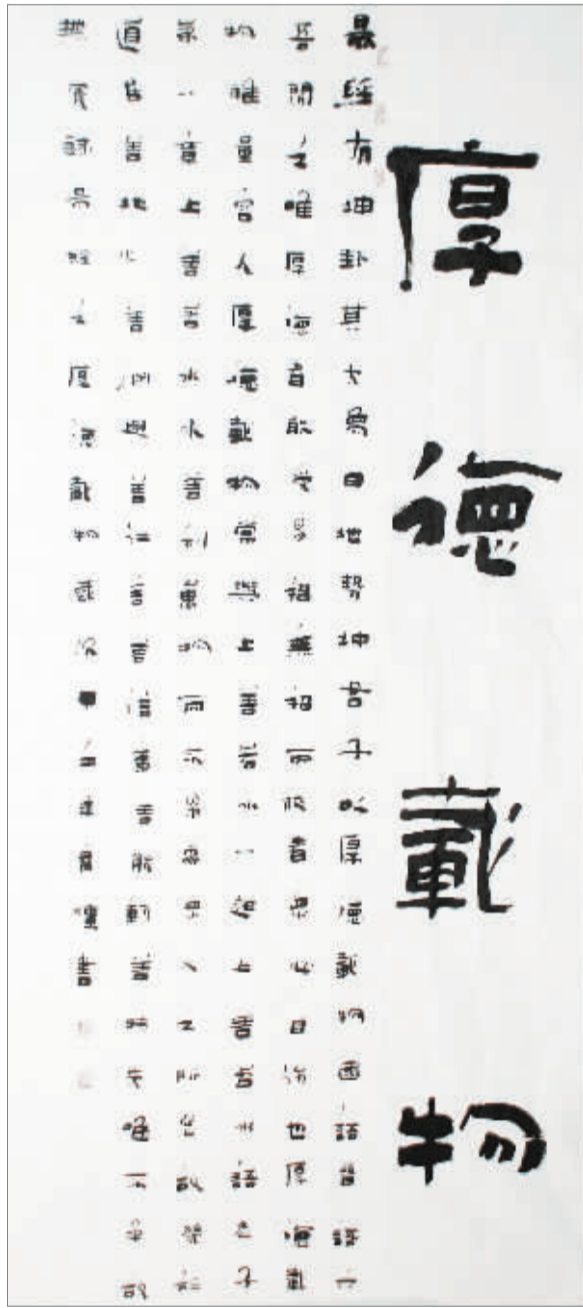 厚德載物
易經有坤卦其大象曰地勢坤君子以厚德載物國語晉語六
吾聞之唯厚德者能受多福無福而服者眾必自傷也厚德載
物唯量人厚德載物常與上善若水一上善若水語老子
第八章上善若水水善利萬物而不爭處眾人之所惡故幾於
道居善地心善淵與善仁言善信善能動善時夫唯不爭故
無尤易經之厚德載物書